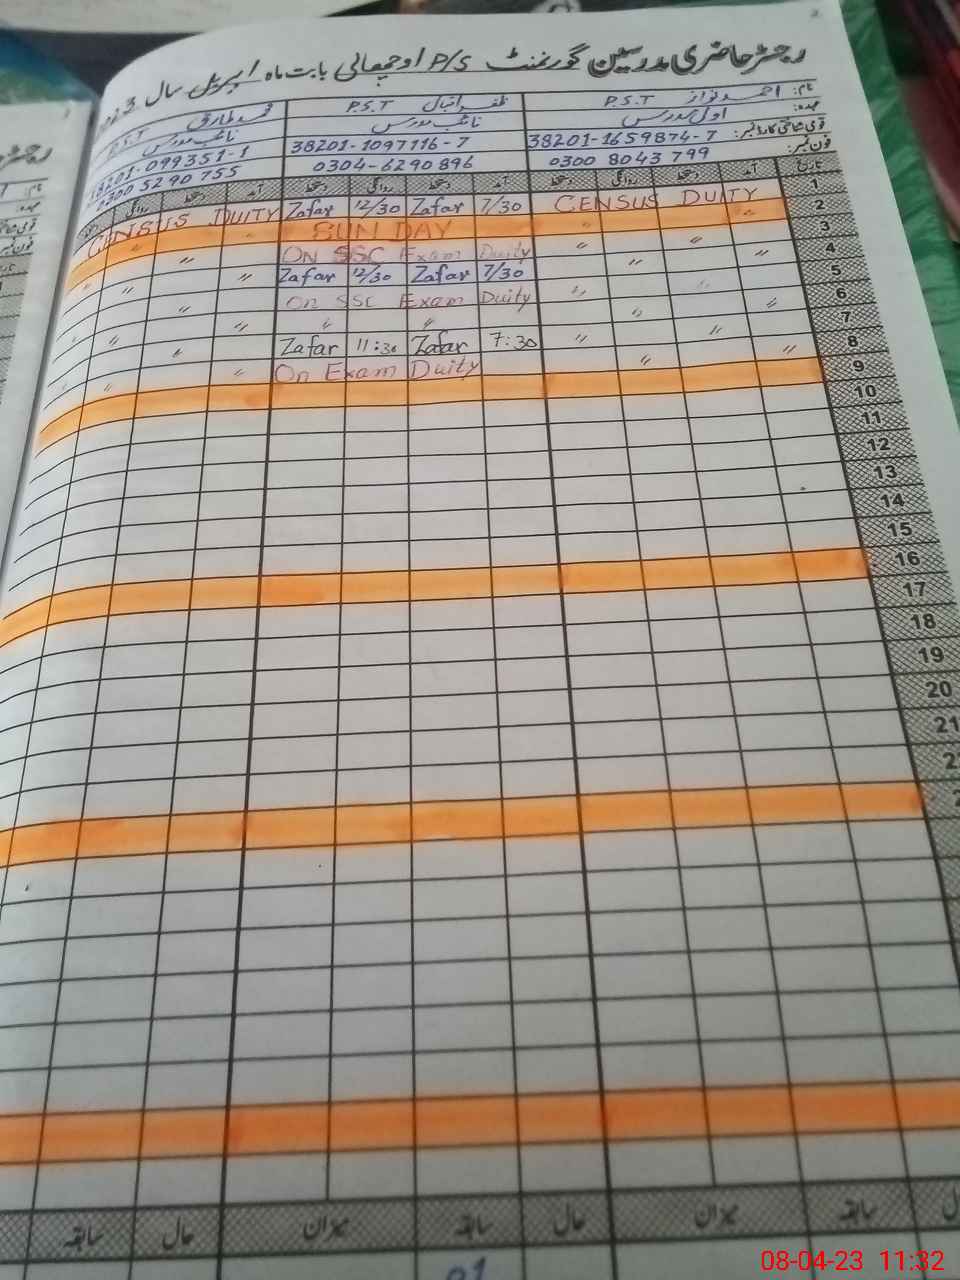 رجسٹر حاضری مدرسین گورنمنٹ P/S اوچھالی بابت ماہ اپریل سال 3
نام: احمد نواز P.S.T ظفر اقبال P.S.T محمد طارق P.S.T
عہدہ: اول مدرس نائب مدرس نائب مدرس
قومی شناختی کارڈ نمبر: 38201-1659874-7 38201-1097116-7 38201-099351-1
فون نمبر: 0300 8043 799 0304-6290896 0300 5290 755
تاریخ آمد دستخط روانگی دستخط آمد دستخط روانگی دستخط آمد دستخط روانگی
1 CENSUS DUITY Zafar 12/30 Zafar 7/30 CENSUS DUITY
2 " SUN DAY "
3 " " On SSC Exam Duity " "
4 " Zafar 12/30 Zafar 7/30 " "
5 " On SSC Exam Duity " "
6 " " " " "
7 " " Zafar 11:30 Zafar 7:30 " "
8 " " On Exam Duity " "
9
10
11
12
13
14
15
16
17
18
19
20
21
سابقہ میزان حال سابقہ میزان حال سابقہ
01
08-04-23 11:32